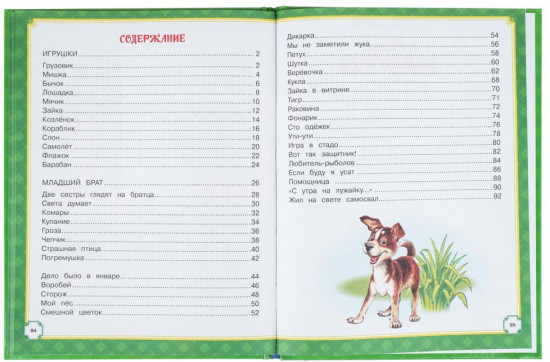 СОДЕРЖАНИЕ
ИГРУШКИ 2
Грузовик 2
Мишка 4
Бычок 6
Лошадка 8
Мячик 10
Зайка 12
Козлёнок 14
Кораблик 16
Слон 18
Самолёт 20
Флажок 22
Барабан 24
МЛАДШИЙ БРАТ 26
Две сестры глядят на братца 28
Света думает 30
Комары 32
Купание 34
Гроза 36
Чепчик 38
Страшная птица 40
Погремушка 42
Дело было в январе 44
Воробей 46
Сторож 48
Мой пёс 50
Смешной цветок 52
94
Дикарка 54
Мы не заметили жука 56
Петух 58
Шутка 60
Верёвочка 62
Кукла 68
Зайка в витрине 70
Тигр 71
Раковина 72
Фонарик 74
Сто одёжек 76
Ути-ути 78
Игра в стадо 80
Вот так защитник! 82
Любитель-рыболов 84
Если буду я усат 86
Помощница 88
«С утра на лужайку...» 90
Жил на свете самосвал 92
95